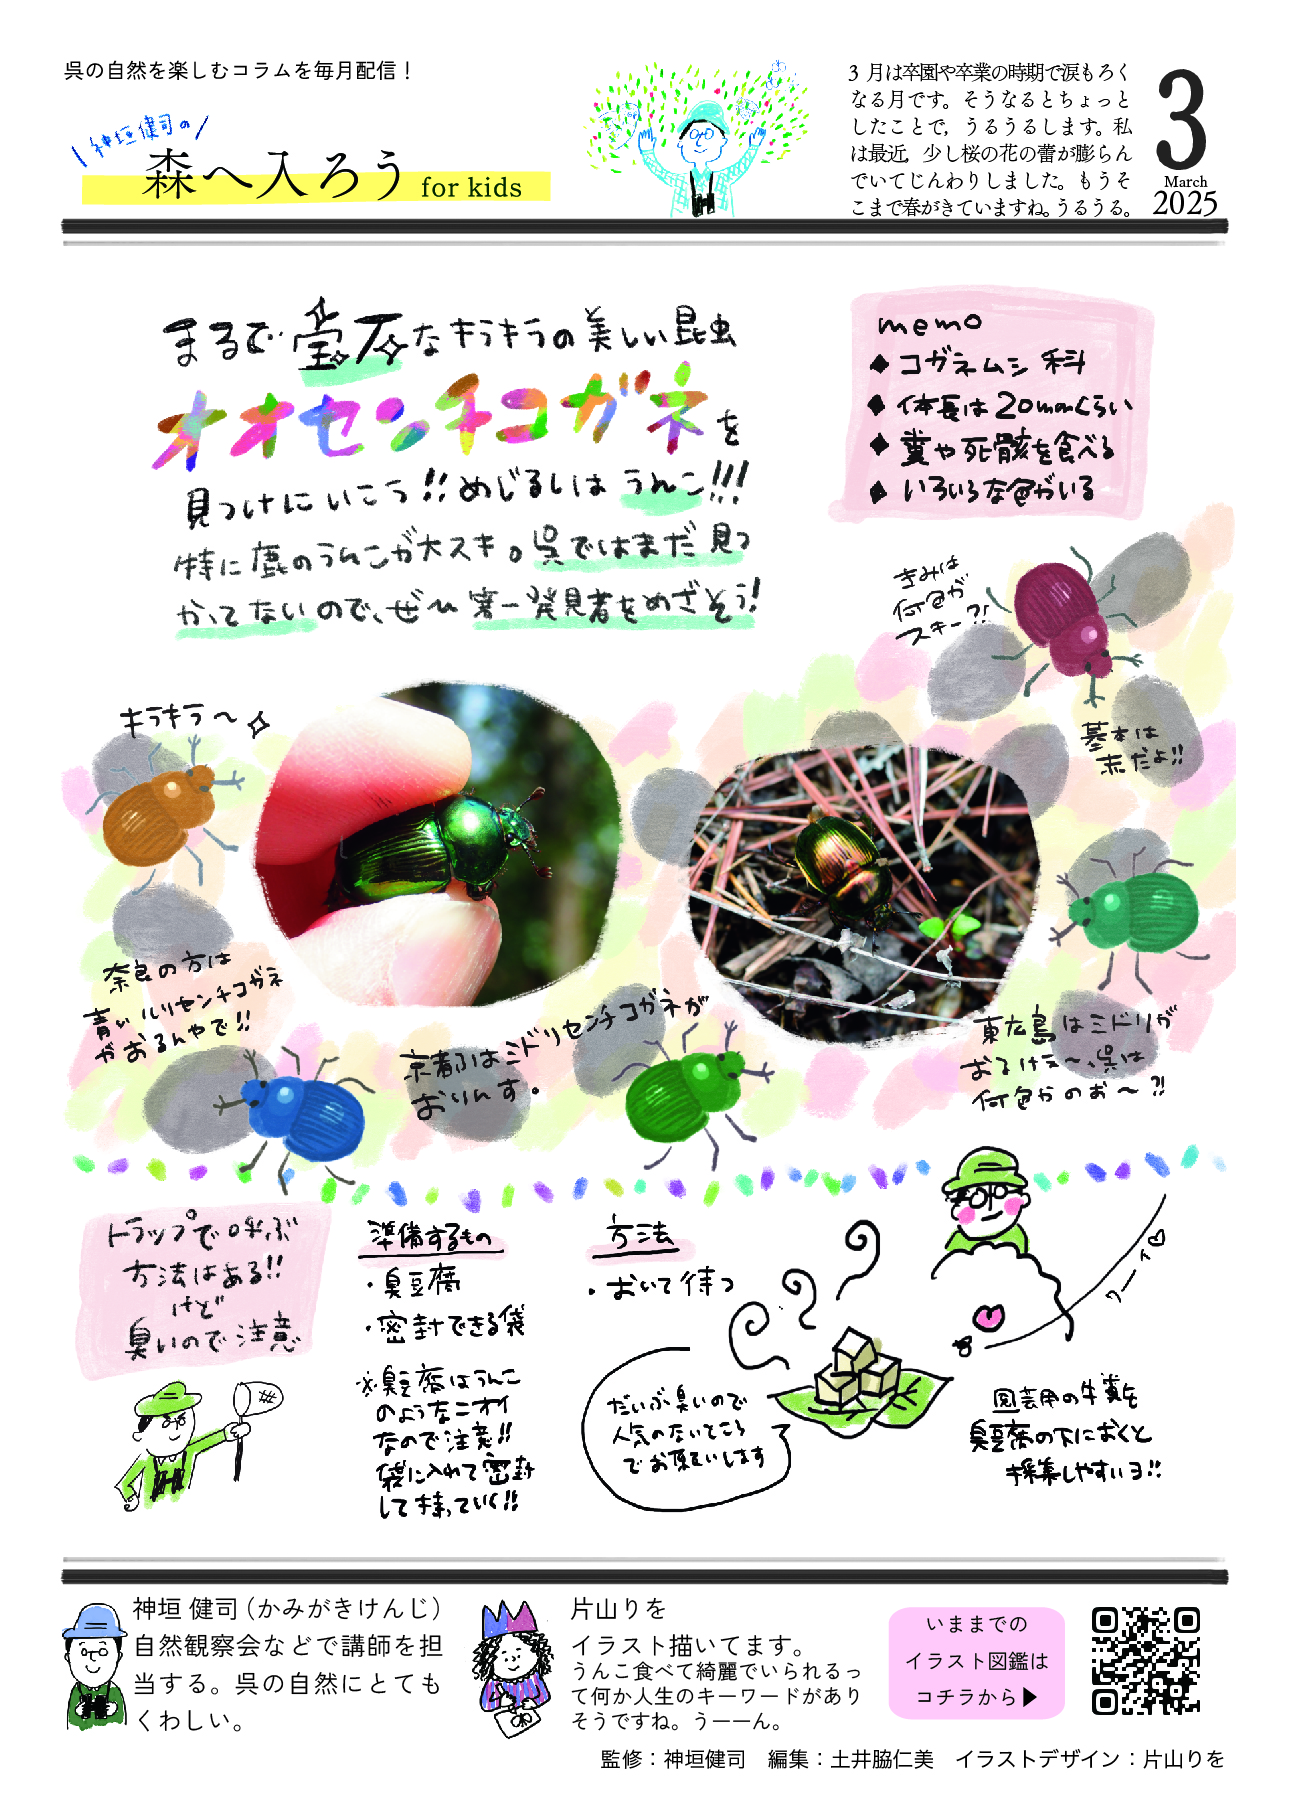 呉の自然を楽しむコラムを毎月配信！
神垣健司の
森へ入ろう for kids
3 月は卒園や卒業の時期で涙もろく
なる月です。そうなるとちょっと
したことで，うるうるします。私
は最近，少し桜の花の蕾が膨らん
でいてじんわりしました。もうそ
こまで春がきていますね。うるうる。
3
March
2025
まるで宝石なキラキラの美しい昆虫
オオセンチコガネを
見つけにいこう!!めじるしはうんこ!!!
特に鹿のうんこが大スキ。呉ではまだ見つ
かってないので、ぜひ第一発見者をめざそう!
memo
◆コガネムシ科
◆体長は20mmくらい
◆糞や死骸を食べる
◆いろいろな色がいる
きみは
何色が
スキー?!
基本は
赤だよ!!
キラキラ〜
奈良の方は
青いルリセンチコガネ
がおるんやで!!
京都はミドリセンチコガネが
おりんす。
東広島はミドリが
おるけえ〜、呉は
何色かのお〜?!
トラップで呼ぶ
方法はある!!
けど
臭いので注意
準備するもの
・臭豆腐
・密封できる袋
※臭豆腐はうんこ
のようなニオイ
なので注意!!
袋に入れて密封
して持っていく!!
方法
・おいて待つ
だいぶ臭いので
人気のないところ
でお願いします
ワーイ♡
園芸用の牛糞を
臭豆腐の下におくと
採集しやすいヨ!!
神垣 健司（かみがきけんじ）
自然観察会などで講師を担
当する。呉の自然にとても
くわしい。
片山りを
イラスト描いてます。
うんこ食べて綺麗でいられるっ
て何か人生のキーワードがあり
そうですね。うーーん。
いままでの
イラスト図鑑は
コチラから▶
監修：神垣健司　編集：土井脇仁美　イラストデザイン：片山りを